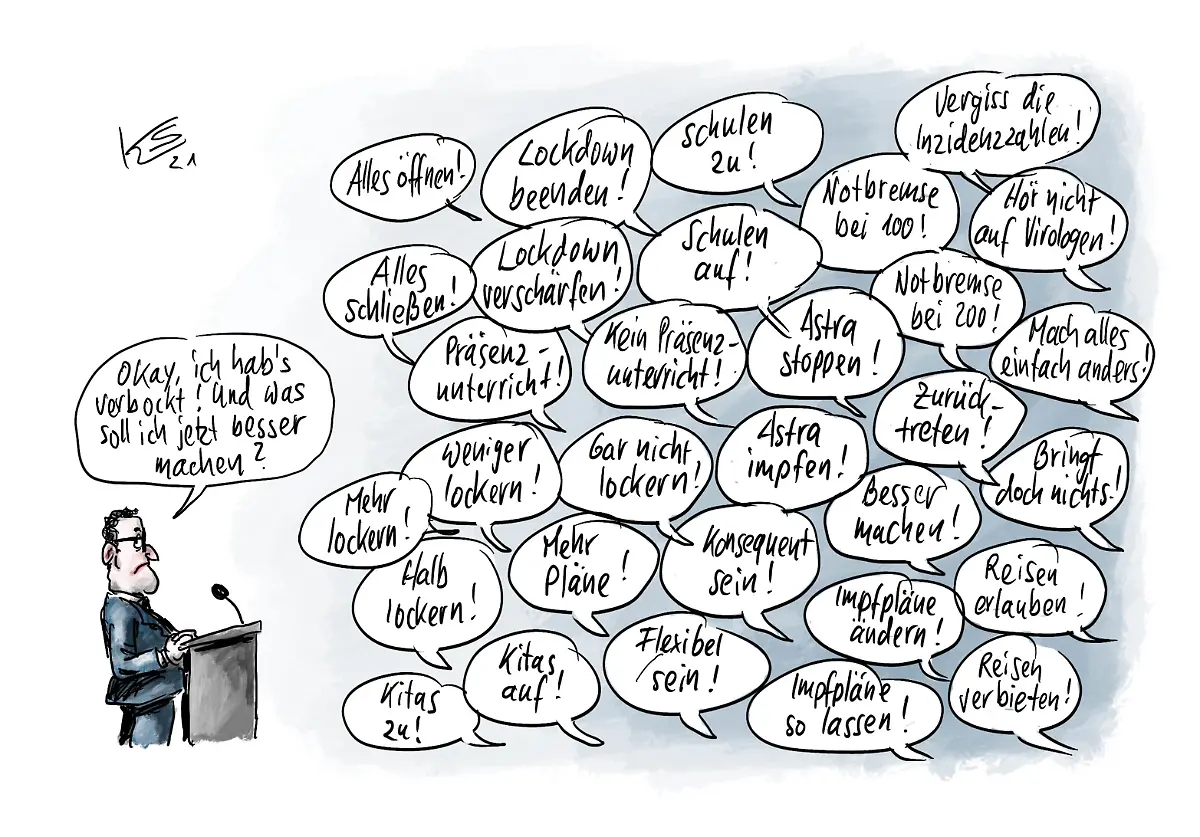 KS
21
Okay, ich hab's
verbockt! Und was
soll ich jetzt besser
machen?
Alles öffnen!
Lockdown
beenden!
Schulen
zu!
Vergiss die
Inzidenzzahlen!
Notbremse
bei 100!
Hör nicht
auf Virologen!
Alles
schließen!
Lockdown
verschärfen!
Schulen
auf!
Notbremse
bei 200!
Präsenz-
unterricht!
Kein Präsenz-
unterricht!
Astra
stoppen!
Mach alles
einfach anders!
Zurück-
treten!
Mehr
lockern!
Weniger
lockern!
Gar nicht
lockern!
Astra
impfen!
Bringt
doch nichts!
Besser
machen!
Halb
lockern!
Mehr
Pläne!
Konsequent
sein!
Impfpläne
ändern!
Reisen
erlauben!
Kitas
zu!
Kitas
auf!
Flexibel
sein!
Impfpläne
so lassen!
Reisen
verbieten!